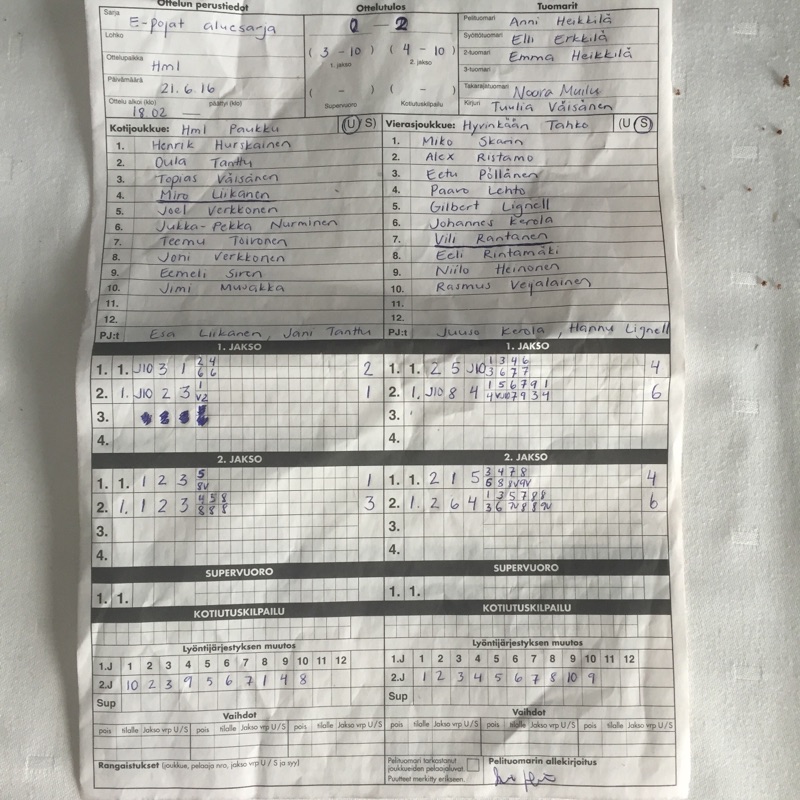 Ottelun perustiedot
Sarja E-pojat aluesarja
Lohko
Ottelupaikka Hml
Päivämäärä 21.6.16
Ottelu alkoi (klo) 18.02 päättyi (klo)
Ottelutulos
0 - 2
( 3 - 10 ) ( 4 - 10 )
1. jakso 2. jakso
( - ) ( - )
Supervuoro Kotiutuskilpailu
Tuomarit
Pelituomari Anni Heikkilä
Syöttötuomari Elli Erkkilä
2-tuomari Emma Heikkilä
3-tuomari
Takarajatuomari Noora Muilu
Kirjuri Tuulia Väisänen
Kotijoukkue: Hml Paukku (U S)
1. Henrik Hurskainen
2. Oula Tanttu
3. Topias Väisänen
4. Miro Liikanen
5. Joel Verkkonen
6. Jukka-Pekka Nurminen
7. Teemu Toivonen
8. Joni Verkkonen
9. Eemeli Siren
10. Jimi Muukka
11.
12.
PJ:t Esa Liikanen, Jani Tanttu
Vierasjoukkue: Hyvinkään Tahko (U S)
1. Miko Skarin
2. Alex Ristamo
3. Eetu Pöllänen
4. Paavo Lehto
5. Gilbert Lignell
6. Johannes Kerola
7. Vili Rantanen
8. Eeli Rintamäki
9. Niilo Heinonen
10. Rasmus Vejalainen
11.
12.
PJ:t Juuso Kerola, Hannu Lignell
1. JAKSO
1. 1. J10 3 1 2 4 2
6 6
2. 1. J10 2 3 1 1
V2
3.
4.
1. JAKSO
1. 1. 2 5 J10 1 3 4 6 4
3 6 7 7
2. 1. J10 8 4 1 5 6 7 9 1 6
3.
4.
2. JAKSO
1. 1. 1 2 3 5 1
8V
2. 1. 1 2 3 4 5 8 3
8 8 8
3.
4.
2. JAKSO
1. 1. 2 1 5 3 4 7 8 4
6 8 8V 9V
2. 1. 2 6 4 1 3 5 7 8 8 6
3.
4.
SUPERVUORO
1. 1.
SUPERVUORO
1. 1.
KOTIUTUSKILPAILU
KOTIUTUSKILPAILU
Lyöntijärjestyksen muutos
1.J 1 2 3 4 5 6 7 8 9 10 11 12
2.J 10 2 3 9 5 6 7 1 4 8
Sup
Lyöntijärjestyksen muutos
1.J 1 2 3 4 5 6 7 8 9 10 11 12
2.J 1 2 3 4 5 6 7 8 10 9
Sup
Vaihdot
pois tilalle Jakso vrp U/S pois tilalle Jakso vrp U/S pois tilalle Jakso vrp U/S
Vaihdot
pois tilalle Jakso vrp U/S pois tilalle Jakso vrp U/S pois tilalle Jakso vrp U/S
Rangaistukset (joukkue, pelaaja nro, jakso vrp U/S ja syy)
Pelituomari tarkastanut
joukkueiden pelaajaluvat.
Puutteet merkitty erikseen.
Pelituomarin allekirjoitus